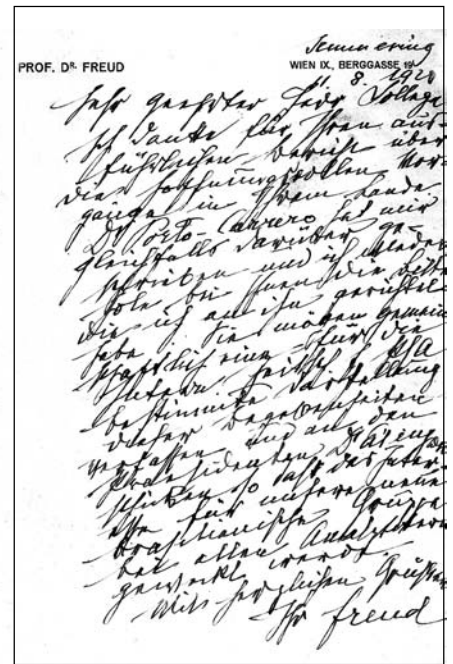 Semmering
PROF. DR. FREUD WIEN IX., BERGGASSE 19
11. 8. 1928
Sehr geehrter Herr College
Ich danke für Ihren aus-
führlichen Bericht über
die hoffnungsvollen Vor-
gänge in Ihrem Lande.
Dr Porto-Carrero hat mir
gleichfalls darüber ge-
schrieben und ich wieder-
hole bei Ihnen die Bitte
die ich an ihn gerichtet
habe: Sie mögen gemein
schaftlich eine für die
Intern. Zeitsch. f. PsA
bestimmte Darstellung
dieser Begebenheiten
verfassen und an den
Praesidenten Dr Eitingon
schicken so daß das Inter-
esse für unsere neue
brasilianische Gruppe
bei allen Analytikern
geweckt werde.
Mit herzlichen Grüßen
Ihr Freud